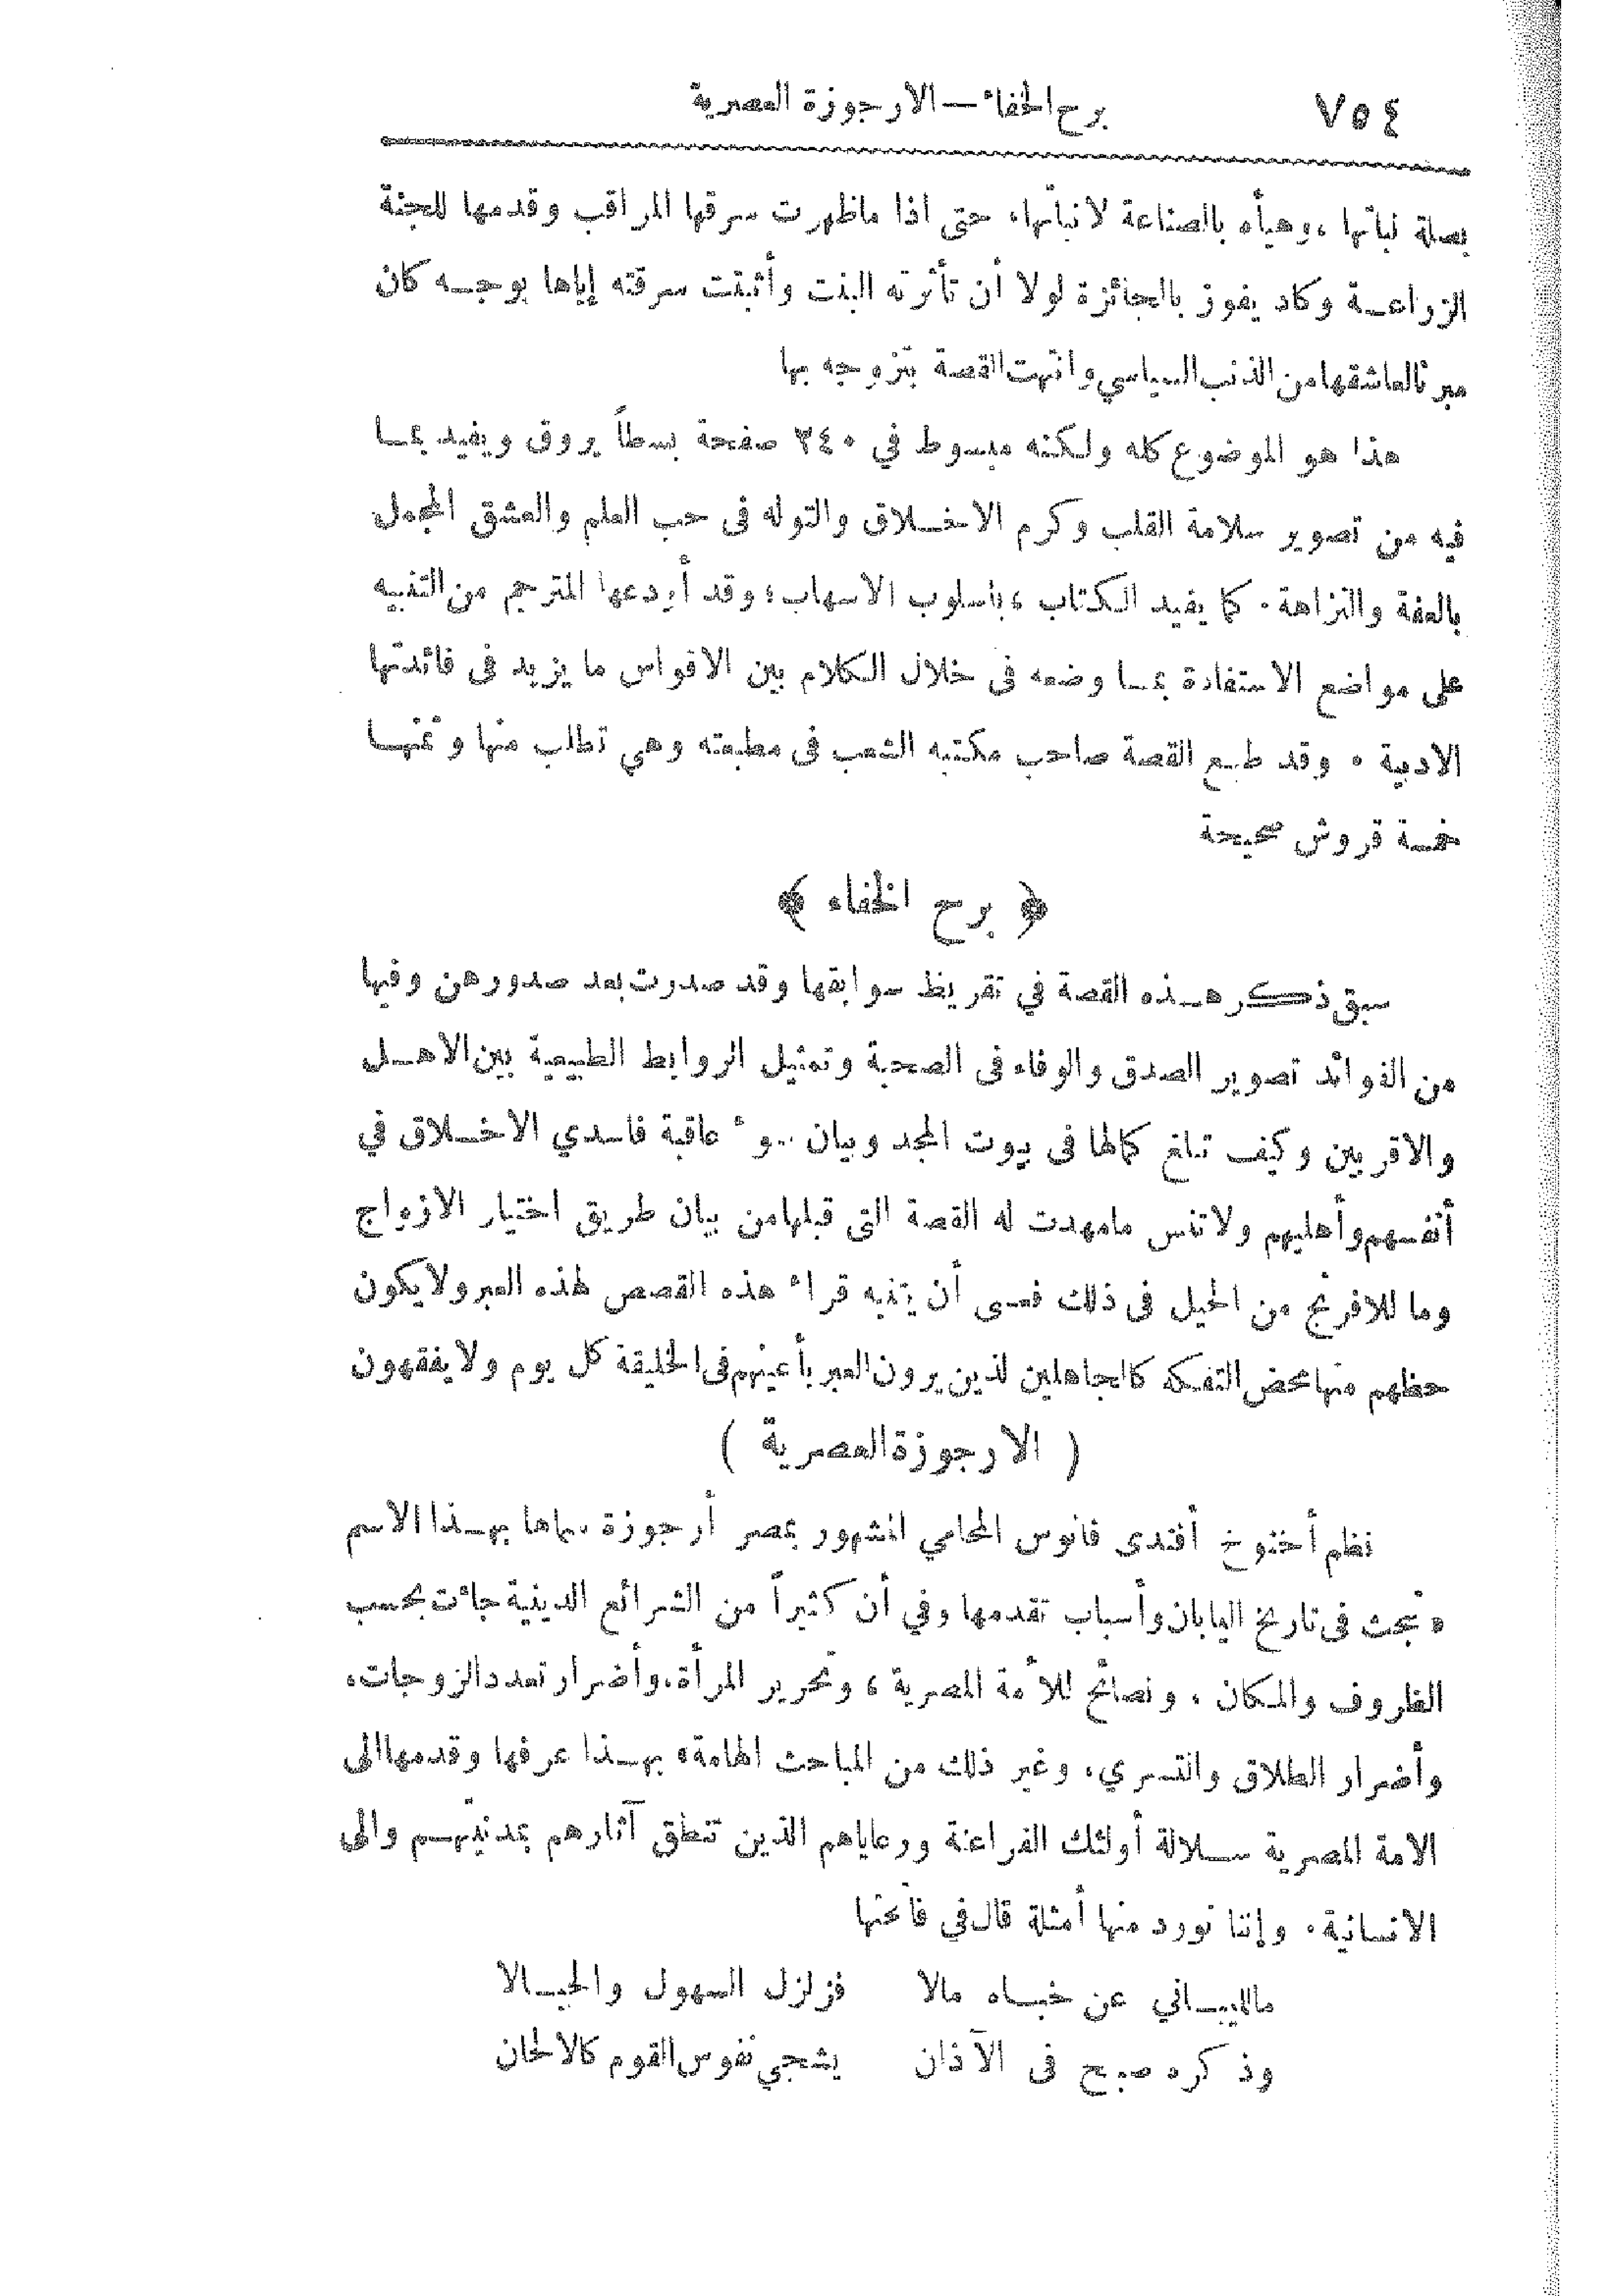 ٧٥٤ برح الخفاء — الارجوزة العصرية
بصلة نباتها ، وهيأه بالصناعة لانباتها، حتى اذا ماظهرت سرقها المراقب وقدمها للجنة
الزراعة وكاد يفوز بالجائزة لولا أن تأثرته البنت وأثبتت سرقته إياها بوجه كان
مبرئا لعاشقها من الذنب السياسي وانتهت القصة بتزوجه بها
هذا هو الموضوع كله ولكنه مبسوط في ٣٤٠ صفحة بسطاً يروق ويفيد بما
فيه من تصوير سلامة القلب وكرم الاخلاق والتوله فى حب العلم والعشق المجمل
بالعفة والنزاهة . كما يفيد الكتاب ، بأسلوب الاسهاب ؛ وقد أودعها المترجم من التنبيه
على مواضع الاستفادة بما وضعه فى خلال الكلام بين الاقواس ما يزيد فى فائدتها
الادبية . وقد طبع القصة صاحب مكتبه الشعب فى مطبعته وهي تطلب منها وثمنها
خمسة قروش صحيحة
﴿ برح الخفاء ﴾
سبق ذكر هذه القصة في تقريظ سوابقها وقد صدرت بعد صدورهن وفيها
من الفوائد تصوير الصدق والوفاء فى الصحبة وتمثيل الروابط الطبيعية بين الاهل
والاقربين وكيف تبلغ كمالها فى بيوت المجد وبيان سوء عاقبة فاسدي الاخلاق في
أنفسهم وأهليهم ولا تنس مامهدت له القصة التى قبلها من بيان طريق اختيار الازواج
وما للافرنج من الحيل فى ذلك فعسى أن يتنبه قراء هذه القصص لهذه العبر ولا يكون
حظهم منها محض التفكه كالجاهلين لذين يرون العبر بأعينهم فى الخليقة كل يوم ولا يفقهون
( الارجوزة العصرية )
نظم أخنوخ أفندى فانوس المحامي المشهور بمصر أرجوزة سماها بهذا الاسم
« تبحث فى تاريخ اليابان وأسباب تقدمها وفي أن كثيراً من الشرائع الدينية جائت بحسب
الظروف والمكان ، ونصائح للأمة المصرية ، وتحرير المرأة، وأضرار تعدد الزوجات،
وأضرار الطلاق والتسري، وغير ذلك من المباحث الهامة» بهذا عرفها وقدمها الى
الامة المصرية سلالة أولئك الفراعنة ورعاياهم الذين تنطق آثارهم بمدنيتهم والى
الانسانية . وإننا نورد منها أمثلة قال في فاتحتها
ماللبيباني عن خباه مالا فزلزل السهول والجبالا
وذكره صبح فى الآذان يشجي نفوس القوم كالالحان